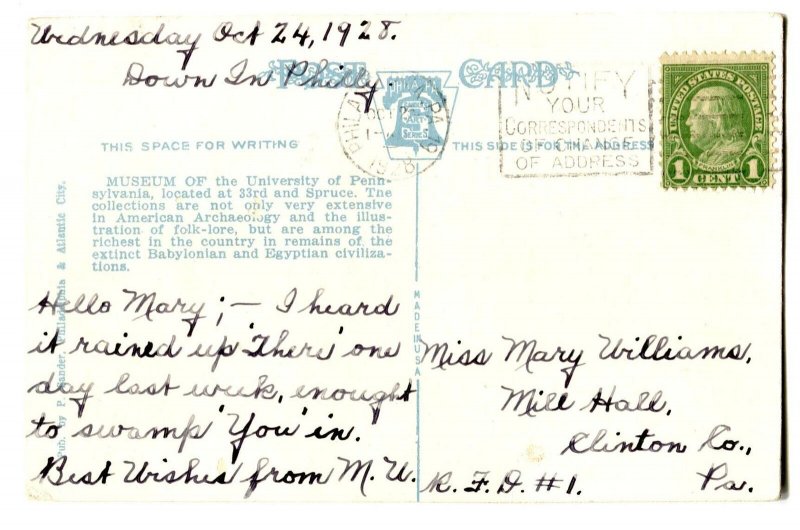 Wednesday Oct 24, 1928.
Down In Philly.
POST CARD
PHILA. PA.
1928
NOTIFY
YOUR
CORRESPONDENTS
OF CHANGE
OF ADDRESS
UNITED STATES POSTAGE
FRANKLIN
1 CENT 1
THIS SPACE FOR WRITING
THIS SIDE IS FOR THE ADDRESS
ART
SERIES
MUSEUM OF the University of Penn-
sylvania, located at 33rd and Spruce. The
collections are not only very extensive
in American Archaeology and the illus-
tration of folk-lore, but are among the
richest in the country in remains of the
extinct Babylonian and Egyptian civiliza-
tions.
Pub. by P. Sander, Philadelphia & Atlantic City.
MADE IN USA
Hello Mary; — I heard
it rained up 'There' one
day last week, enought
to swamp 'You' in.
Best Wishes from M. U.
Miss Mary Williams,
Mill Hall,
Clinton Co.,
R. F. D. #1. Pa.